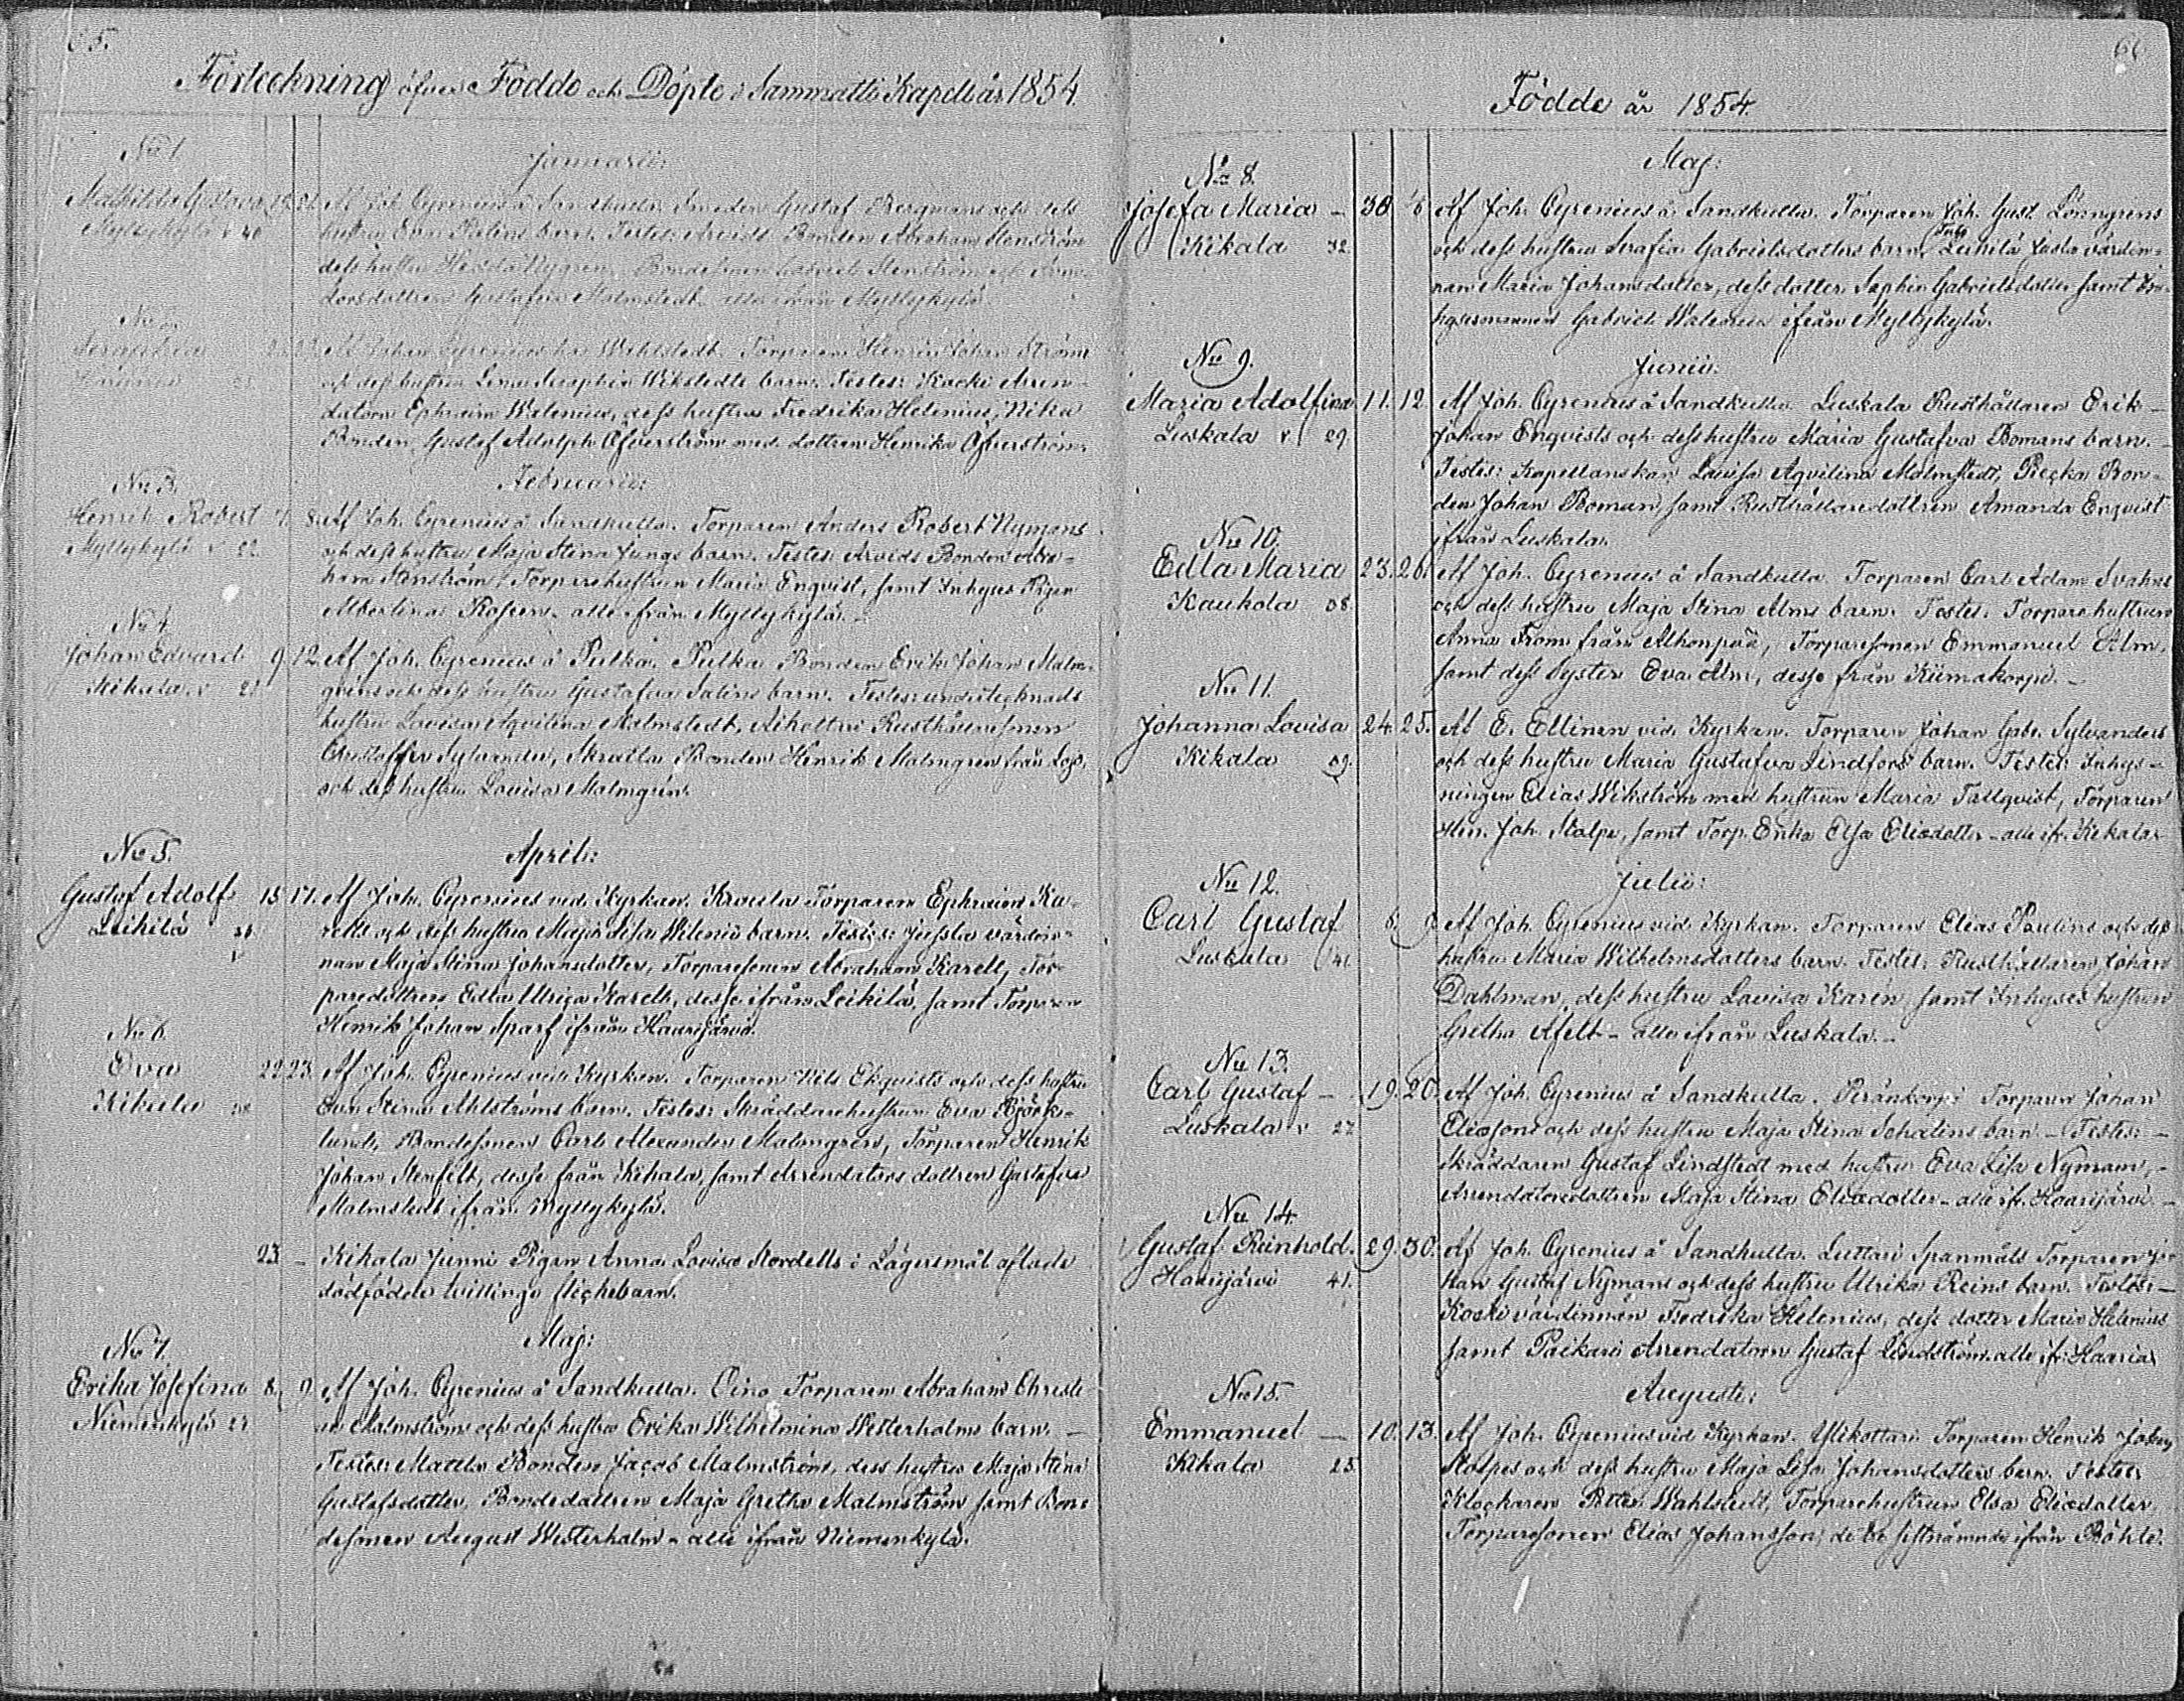 65.
Förteckning öfver Födde och Döpte i Sammatti Kapell år 1854.
No 1.
Januarii:
Mathilda Gustava 19. 21. Af Joh. Cyrenius å Sandkulla. Smeden Gustaf Bergmans och dess
Myllykylä v 40 hustru Eva Palins barn. Testes: Arvids Bonden Abraham Stenström
dess hustru Hedda Nygren, Bondesonen Gabriel Stenström och
dottren Gustafva Malmstedt alla ifrån Myllykylä.
No 2.
Af Johan Cyrenius hos Wahlstedt. Torparen Henric Johan Ströms
och dess hustru Lena Seraphia Wikstedts barn. Testes: Kocki Arren-
datorn Ephraim Walenius, dess hustru Fredrika Helenius, Nika
Bonden Gustaf Adolph Öfverström med dottren Henrika Öfverström.
Februarii:
No 3.
Henrik Robert 7. 8. Af Joh. Cyrenius å Sandkulla. Torparen Anders Robert Nymans
Myllykylä v 22. och dess hustru Maja Stina Jungs barn. Testes: Arvids Bonden Abra-
ham Stenström, Torparehustrun Maria Enqvist, samt Inhyses Pigan
Albertina Rosen, alla ifrån Myllykylä. -
No 4.
Johan Edvard 9. 12. Af Joh. Cyrenius å Pulka. Pulka Bonden Erik Johan Malm-
Kikala v 21 gréns och dess hustru Gustafva Salins barn. Testes: undertecknads
hustru Lovisa Aqvilina Malmstedt, Rusthållaresonen
Sylvander, Skralla Bonden Henrik Malmgren från Lojo,
och dess hustru Lovisa Malmgrén.
April:
No 5.
Gustaf Adolf 15 17. Af Joh. Cyrenius vid Kyrkan. Kraula Torparen Ephraim Ka-
Leikilä 36. v rells och dess hustru Maja Lisa Wilenii barn. Testes: Jussla värdin-
nan Maja Stina Johansdotter, Torparesonen Abraham Karell, Tor-
paredottren Edla Ulrica Karell, desse ifrån Leikilä, samt Torparen
Henrik Johan Sparf ifrån Haarijärvi.
No 6.
Eva 22. 23. Af Joh. Cyrenius vid Kyrkan. Torparen Nils Ekqvists och dess hustru
Kikala 38 Eva Stina Ahlströms barn. Testes: Skräddarehustrun Eva Björk-
lund, Bondesonen Carl Alexander Malmgren, Torparen Henrik
Johan Stenfelt, desse från Kikala, samt Arrendators dottren Gustafva
Malmstedt ifrån Myllykylä.
23 - Kikala Junni Pigan Anna Lovisa Nordells i Lägersmål aflade
dödfödde tvillings flickebarn.
Maj:
No 7.
Erika Josefina 8. 9. Af Joh. Cyrenius å Sandkulla. Oino Torparen Abraham Christi-
Niemenkylä 27. an Malmström och dess hustru Erika Wilhelmina Westerholms barn. -
Testes: Mattla Bonden Jacob Malmström, dess hustru Maja Stina
Gustafsdotter, Bondedottren Maja Gretha Malmström samt Bon-
desonen August Westerholm - alle ifrån Niemenkylä.
66
Födde år 1854.
Maj:
No 8.
Josefa Maria - 30 Af Joh. Cyrenius å Sandkulla. Torparen Joh. Gust. Lönngrens
Kikala 32. och dess hustru Serafia Gabrielsdotters barn. Leikilä värdin-
nan Maria Johansdotter, dess dotter Sophia Gabrielsdotter samt In-
hysesmannen Gabriel Walenius ifrån Myllykylä.
Junii:
No 9.
Maria Adolfina 11. 12. Af Joh. Cyrenius å Sandkulla. Luskala Rusthållaren Erik
Luskala v 29. Johan Enqvists och dess hustru Maria Gustafva Bomans barn.
Testes: Kapellanskan Lovisa Aqvilina Malmstedt, Bon-
den Johan Boman, samt Rusthållaredottren Amanda Enqvist
ifrån Luskala.
No 10.
Edla Maria 23. 26. Af Joh. Cyrenius å Sandkulla. Torparen Carl Adam Svahns
Kaukola 38. och dess hustru Maja Stina Alms barn. Testes: Torparehustrun
Anna From från Alhonpää, Torparesonen Emmanuel Alm,
samt dess Syster Eva Alm, desse från Kiimakorpi. -
No 11.
Johanna Lovisa 24. 25. Af E. Ellinen vid Kyrkan. Torparen Johan Gabr. Sylvanders
Kikala 39. och dess hustru Maria Gustafva Lindfors barn. Testes: Inhys-
ningen Elias Wikström med hustrun Maria Tallqvist, Torparen
Hen. Joh. Stolpe, samt Torp. Enka Elsa Eliedotter - alle ifr. Kikala.
Julii:
No 12.
Carl Gustaf 8. 9. Af Joh. Cyrenius vid Kyrkan. Torparen Elias Paulins och dess
Luskala 41. hustru Maria Wilhelmsdotters barn. Testes: Rusthållaren Johan
Dahlman, dess hustru Lovisa Karén, samt Inhyses hustrun
Gretha Afelt - alle ifrån Luskala. -
No 13.
Carl Gustaf - 19. 20. Af Joh. Cyrenius å Sandkulla. Torparen Johan
Luskala v 27 Eliessons och dess hustru Maja Stina Schalins barn - Testes: -
Skräddaren Gustaf Lindstedt med hustru Eva Lisa Nyman, -
Arrendatoredottren Maja Stina Eliedotter - alle ifr. Haarijärvi -
No 14.
Gustaf Reinhold. 29. 30. Af Joh. Cyrenius å Sandkulla. Luttari Spanmåls Torparen Jo-
Haarijärvi 41. han Gustaf Nymans och dess hustru Ulrika Reins barn. Testes: -
Kocki värdinnan Fredrika Helenius, dess dotter Maria Helenius
samt Paikari Arrendatorn Gustaf Lindström alle ifr. Haarijärvi
Augusti:
No 15.
Emmanuel - 10. 13. Af Joh. Cyrenius vid Kyrkan. Torparen Henrik Johan
Kikala 25. Stolpes och dess hustru Maja Lisa Johansdotters barn. Testes:
Klockaren Petter Wahlstedt, Torparehustrun Elsa Eliedotter,
Torparesonen Elias Johansson, de två sistnämnde ifrån Pöhlö.